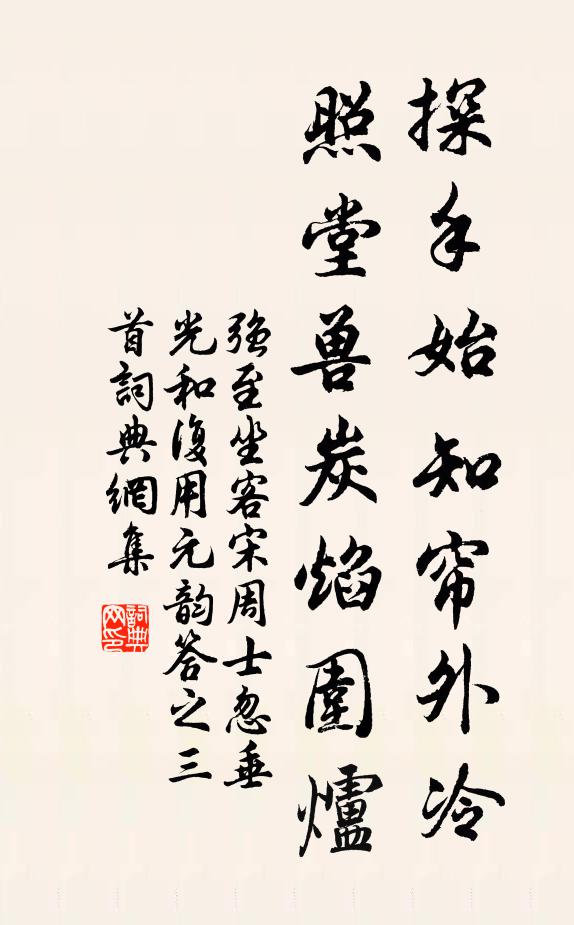 探手始知帘外冷
照堂兽炭焰圍爐
强至坐客宋周士忽垂
光和復用元韵答之三
首詞典網集
詞典網印